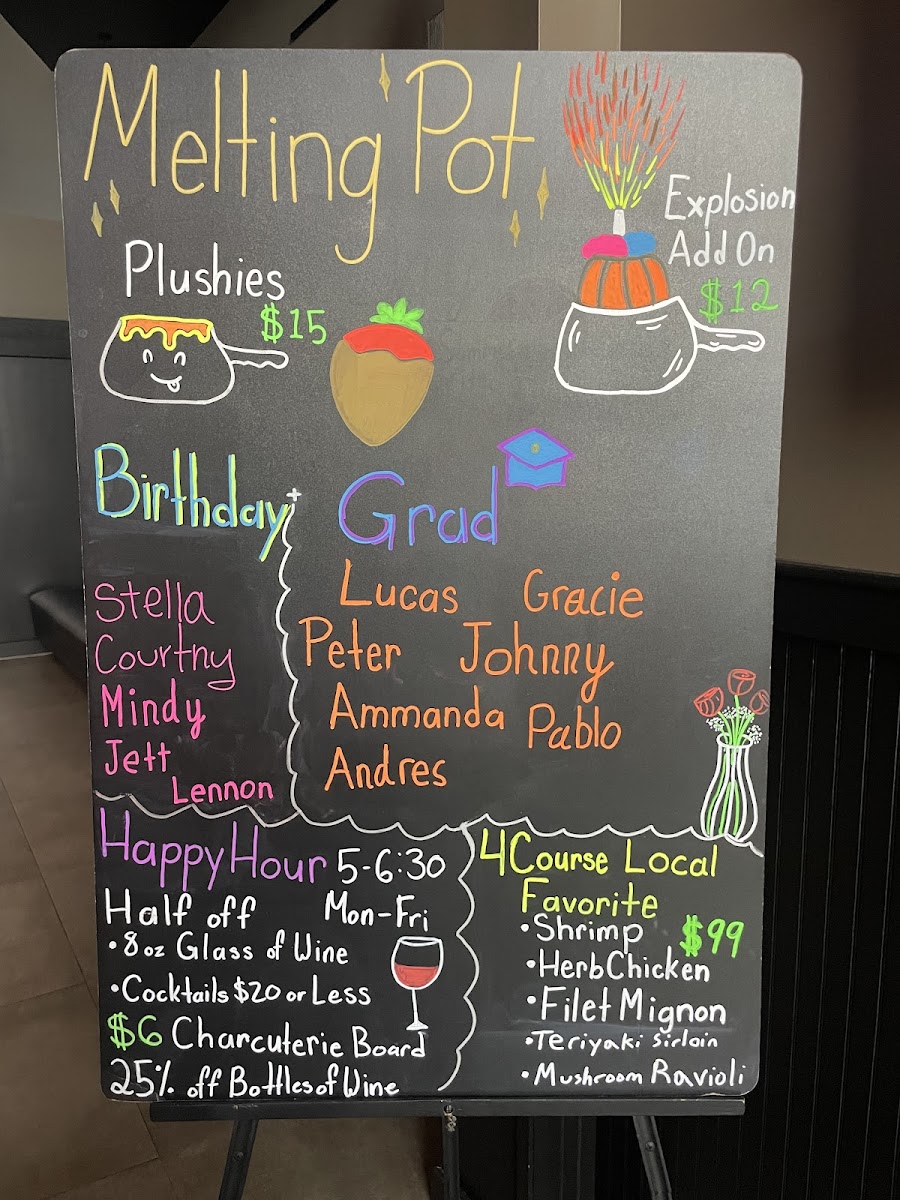 Melting Pot
Explosion
Add On
$12
Plushies
$15
Birthday
Stella
Courtny
Mindy
Jett
Lennon
Grad
Lucas Gracie
Peter Johnny
Ammanda Pablo
Andres
Happy Hour 5-6:30
Half off Mon-Fri
•8oz Glass of Wine
•Cocktails $20 or Less
$6 Charcuterie Board
25% off Bottles of Wine
4 Course Local
Favorite
•Shrimp $99
•Herb Chicken
•Filet Mignon
•Teriyaki Sirloin
•Mushroom Ravioli